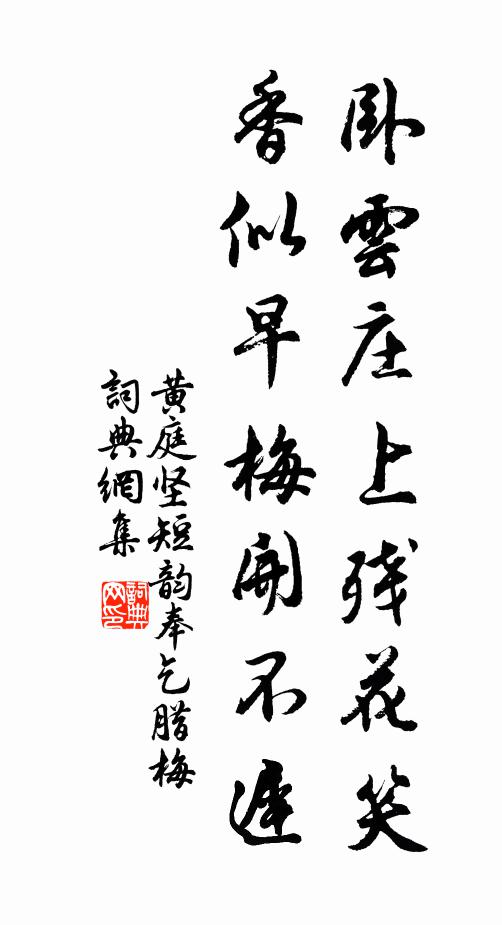 卧雲庄上残花笑
香似早梅開不遲
黄庭坚短韵奉乞腊梅
詞典網集
詞典网印